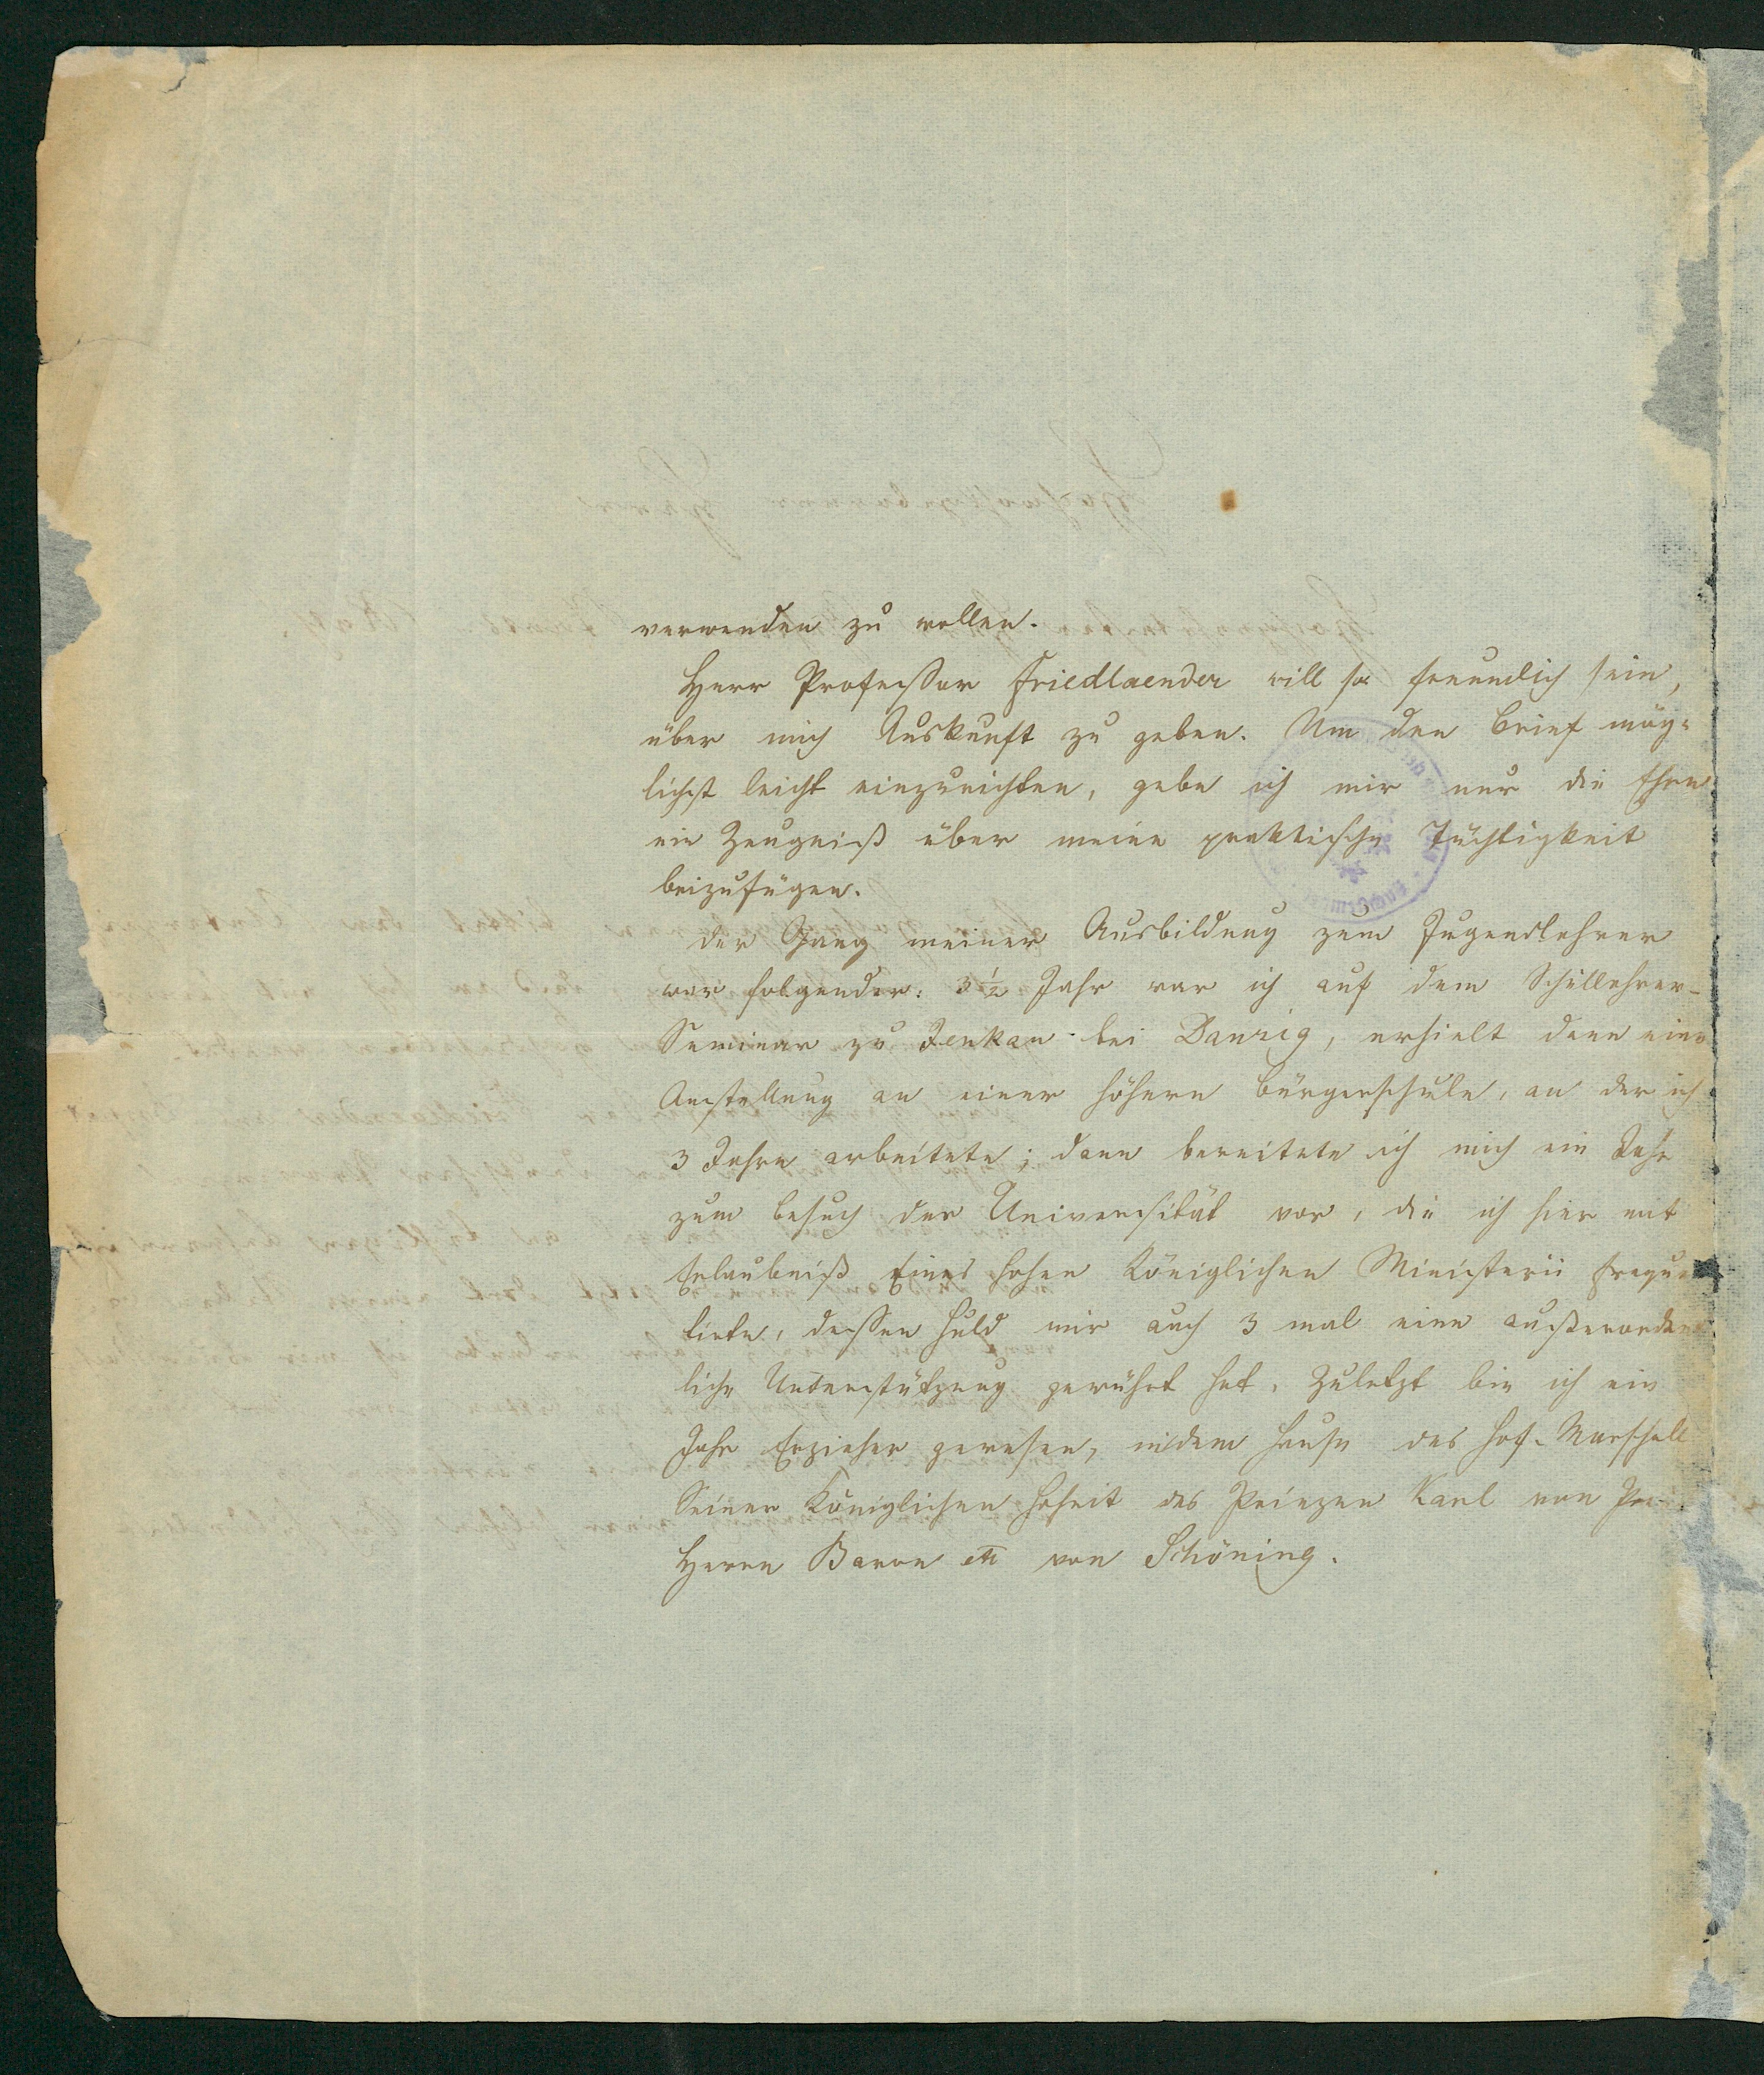 verwenden zu wollen.
Herr Professor Friedlaender will so freundlich sein,
über mich Auskunft zu geben. Um den Brief mög-
lichst leicht einzurichten, gebe ich mir nur die Ehre
ein Zeugniß über meine praktische Tüchtigkeit
beizufügen.
Der Gang meiner Ausbildung zum Jugendlehrer
war folgender: 3½ Jahr war ich auf dem Schullehrer-
Seminar zu Jenkau bei Danzig, erhielt dann eine
Anstellung an einer höhern Bürgerschule, an der ich
3 Jahre arbeitete; dann bereitete ich mich ein Jahr
zum Besuch der Universität vor, die ich hier mit
Erlaubniß Eines hohen Königlichen Ministerii frequen
tirte, dessen Huld mir auch 3 mal eine außerordent
liche Unterstützung gewährt hat. Zuletzt bin ich ein
Jahr Erzieher gewesen, in dem Hause des Hof-Marschall
Seiner Königlichen Hoheit des Prinzen Karl von
Herrn Baron etc von Schöning.